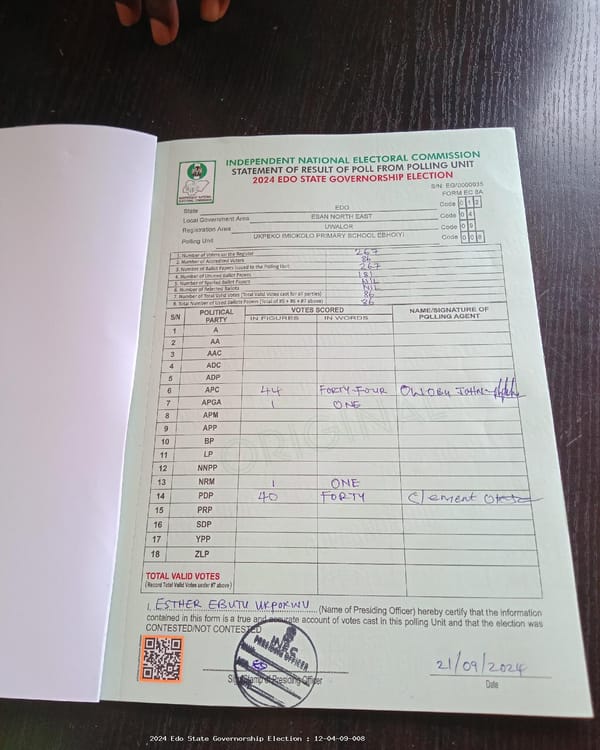 INDEPENDENT NATIONAL ELECTORAL COMMISSION
STATEMENT OF RESULT OF POLL FROM POLLING UNIT
2024 EDO STATE GOVERNORSHIP ELECTION
S/N: EG/0000935
FORM EC 8A
State EDO Code 0 1 2
Local Government Area ESAN NORTH EAST Code 0 4
Registration Area UWALOR Code 0 9
Polling Unit UKPEKO IMIOKOLO PRIMARY SCHOOL EBHOIYI Code 0 0 8
1. Number of Voters on the Register 267
2. Number of Accredited Voters 86
3. Number of Ballot Papers Issued to the Polling Unit 267
4. Number of Unused Ballot Papers 181
5. Number of Spoiled Ballot Papers NIL
6. Number of Rejected Ballots NIL
7. Number of Total Valid Votes (Total Valid Votes cast for all parties) 86
8. Total Number of Used Ballots Papers (Total of #5 + #6 + #7 above) 86
S/N POLITICAL PARTY VOTES SCORED NAME/SIGNATURE OF POLLING AGENT
IN FIGURES IN WORDS
1 A
2 AA
3 AAC
4 ADC
5 ADP
6 APC 44 FORTY-FOUR JOHN
7 APGA 1 ONE
8 APM
9 APP
10 BP
11 LP
12 NNPP
13 NRM 1 ONE
14 PDP 40 FORTY Clement
15 PRP
16 SDP
17 YPP
18 ZLP
ORIGINAL
TOTAL VALID VOTES
(Record Total Valid Votes under #7 above)
I, ESTHER EBUTU UKPOKWU (Name of Presiding Officer) hereby certify that the information
contained in this form is a true and accurate account of votes cast in this polling Unit and that the election was
CONTESTED/NOT CONTESTED
INEC
PRESIDING OFFICER
Sign/Stamp of Presiding Officer
21/09/2024
Date
2024 Edo State Governorship Election : 12-04-09-008